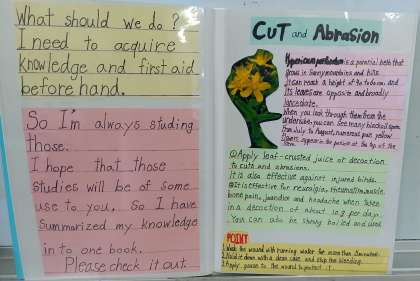 What should we do?
I need to acquire
knowledge and first aid
before hand.
So I'm always studing
those.
I hope that those
studies will be of some
use to you. So I have
summarized my knowledge
in to one book.
Please check it out
CUT and Abrasion
is a perennial herb that
grows in sunny mountains and hills.
It can reach a height of
Its leaves are opposite and broadly
lanceolate.
When you look through them from the
underside, you can see many black spots.
From July to August, numerous pale yellow
flowers appear in the at the tip of the
stem.
①Apply leaf-crushed juice or decoction
to cuts and abrasions.
It is also effective against injured birds.
②It is effective for neuralgia, rheumatism, muscle
bone pain, jaundice and headache when taken
in a decoction of about 10 g per day.
You can also be strong boiled and used
POINT
1. Wash the wound with running water for more than 5 minutes.
2. Hold it down with a clean and stop the bleeding.
3. Apply to the wound to protect it.